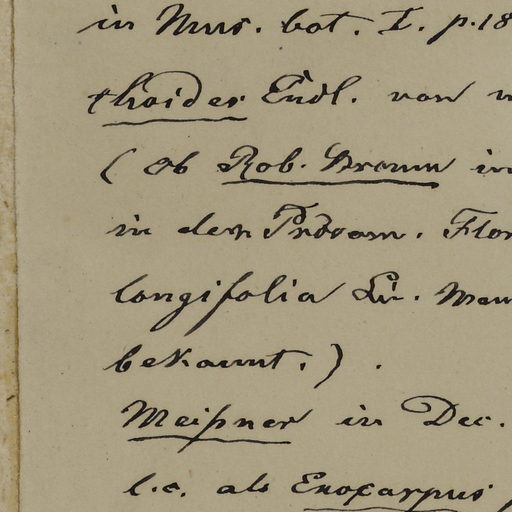 in Mus. bot. I. p. 18
thoides Endl. von
(Ob Rob. Brown in
in der Prodrom. Flor
longifolia Lin.
bekannt.).
Meißner in Dec.
l.c. als Exocarpus